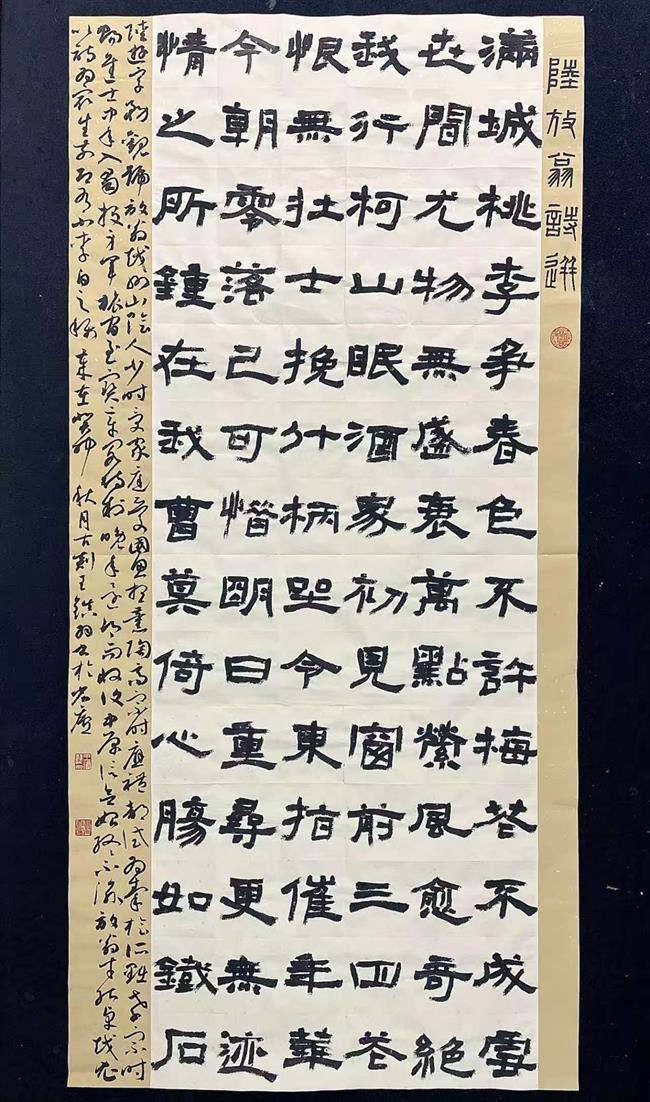 陸放翁詩選
滿城桃李爭春色不許梅花不成雪
世間尤物無盛衰萬點縈風愈奇絕
我行柯山眠酒家初見窗前三四花
恨無壯士挽斗柄坐令東指催年華
今朝零落已可惜明日重尋更無迹
情之所鍾在我曹莫倚心腸如鐵石
陸游字務觀號放翁越州山陰人少時受家庭愛國思想熏陶高宗時應禮部試為秦檜所黜孝宗時
賜進士中年入蜀投身軍旅官至寶章閣待制晚年退居而收復中原信念始終不渝放翁才能卓越尤
以詩為最生前即有小李白之稱 歲在癸卯秋月古荊王鎮書於